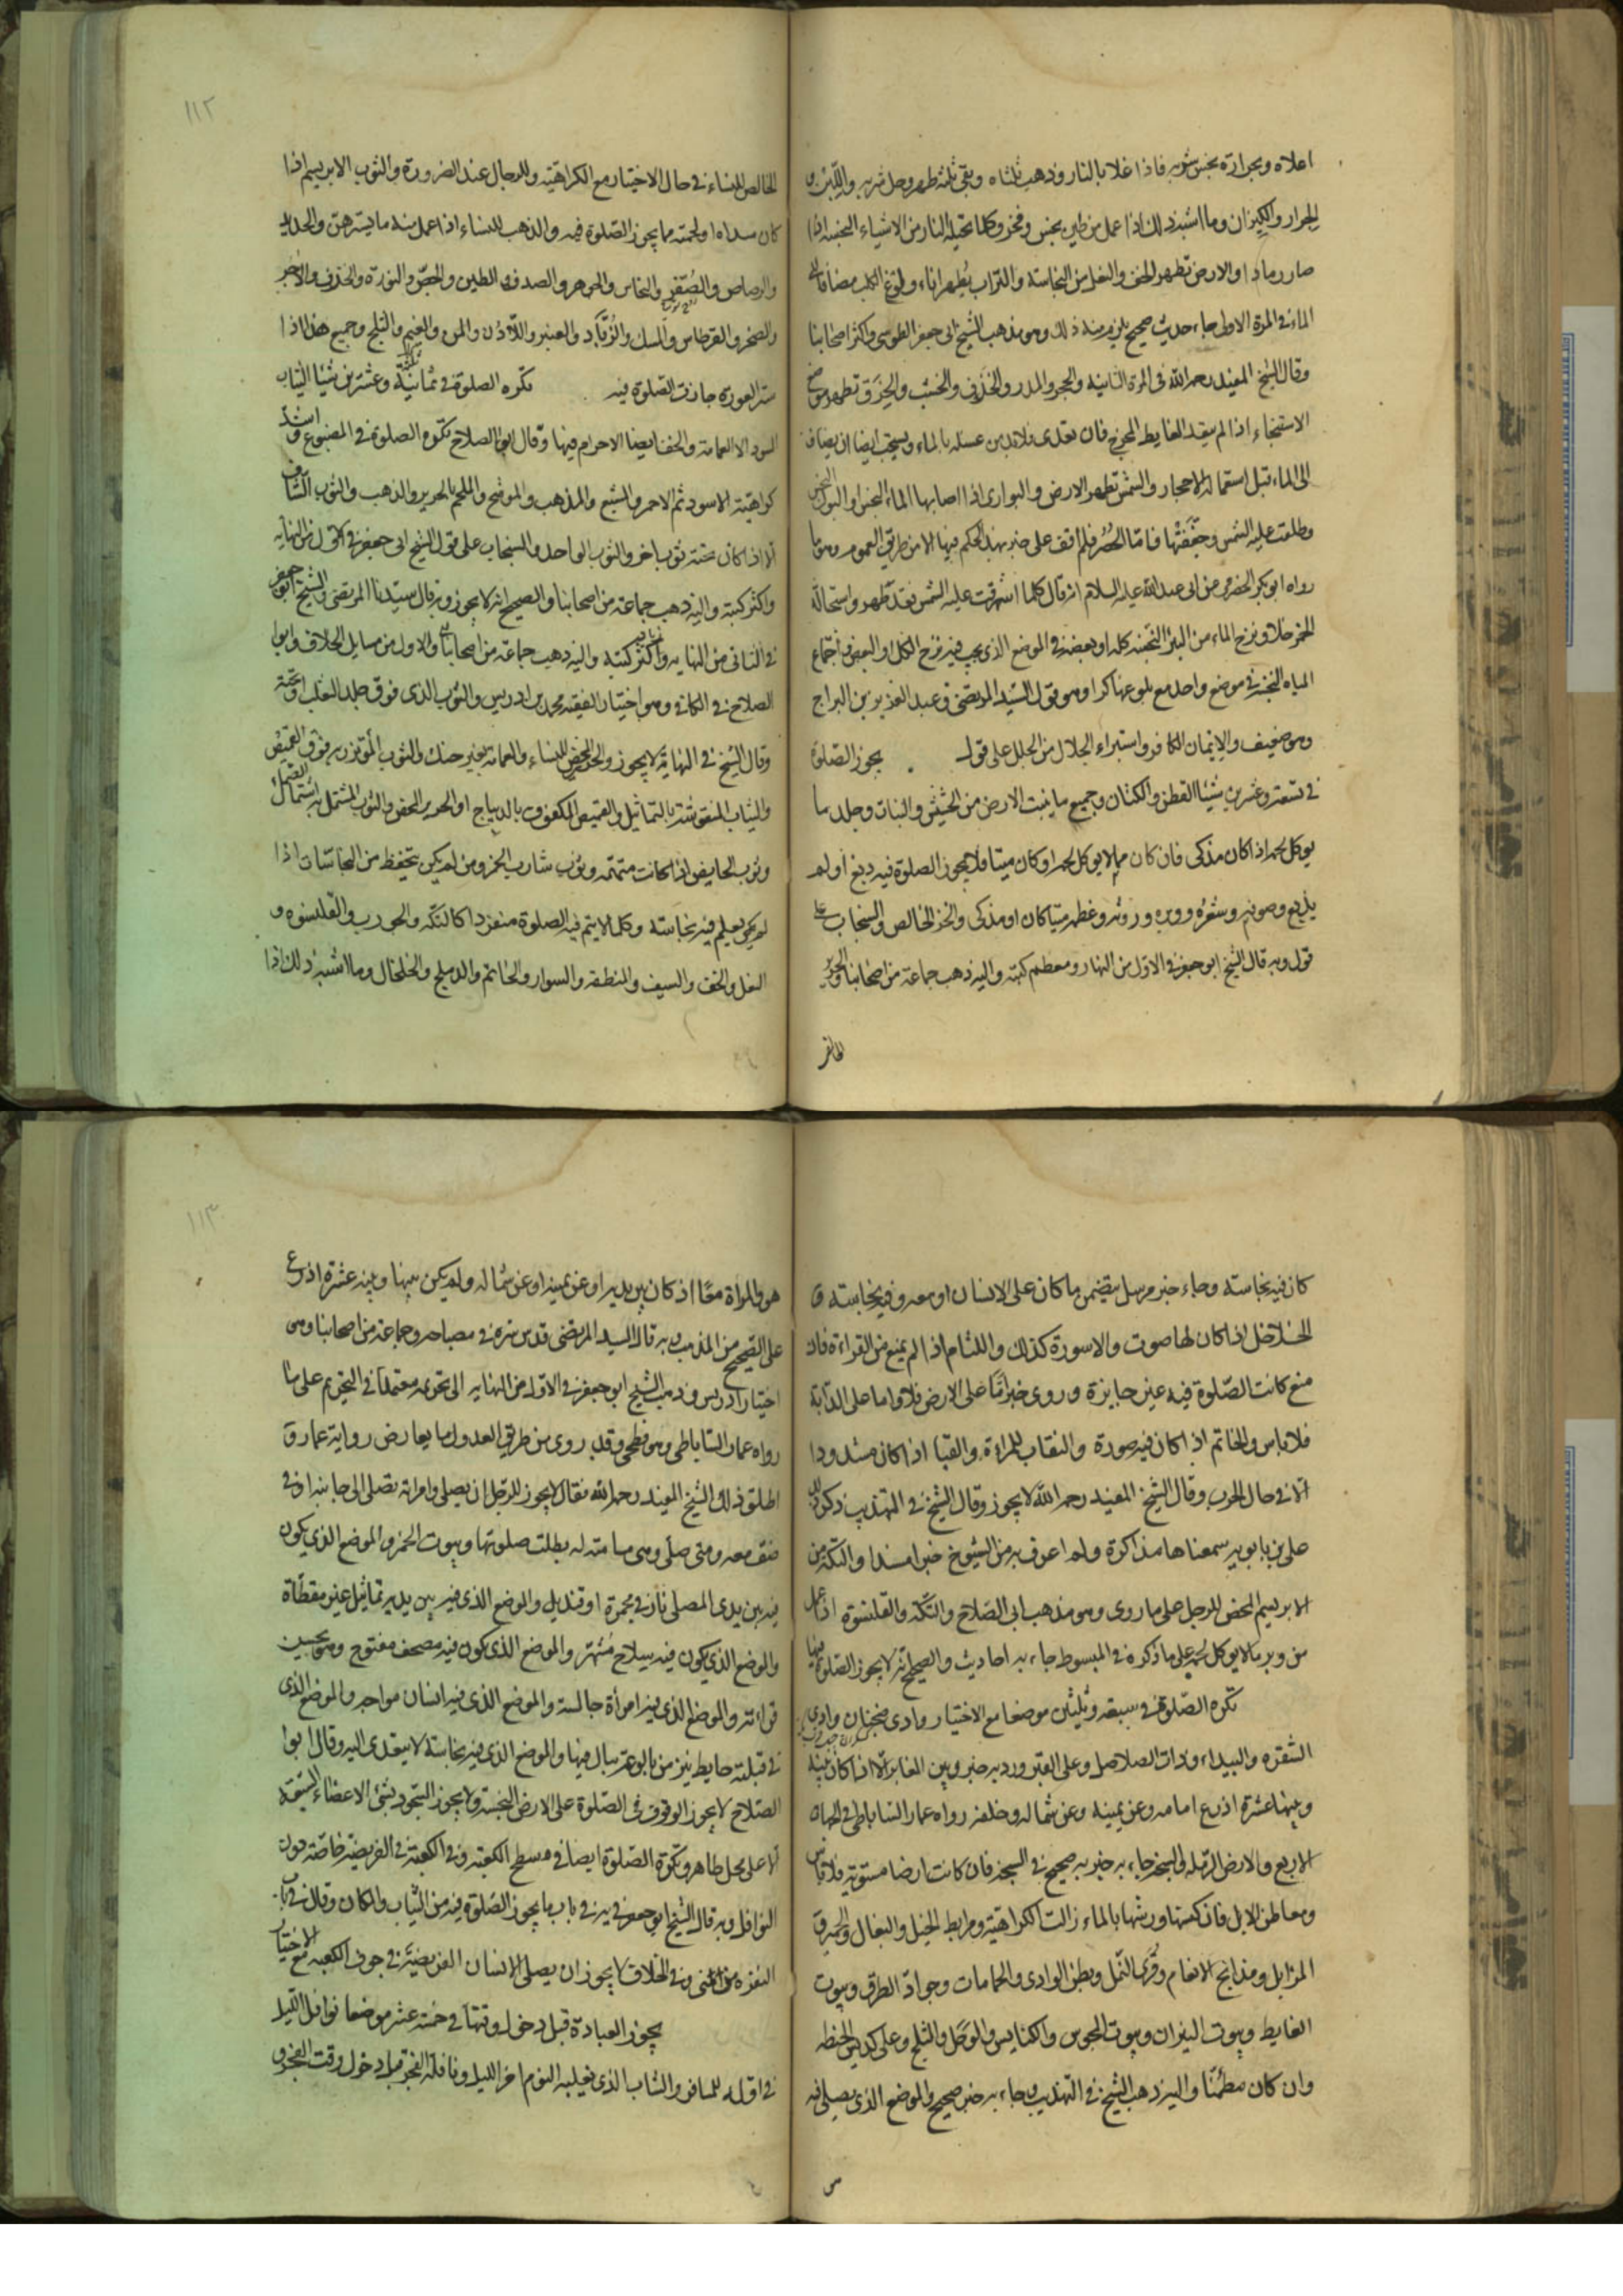 اعلاه وبحرارته نجس شربه فاذا غلا بالنار وذهب ثلثاه وبقى ثلثه طهر وحل شربه واللبن و
الجرار والكيزان وما اشبه ذلك اذا عمل من طين نجس وفخر وكلما تحيله النار من الاشياء النجسه اذا
صار رمادا والارض تطهر الخف والنعل من النجاسة والتراب يطهر اناء ولوغ الكلب مضافا الى
الماء فى المرة الاولى جاء حديث صحيح يلزم منه ذلك وهو مذهب الشيخ ابى جعفر الطوسى واكثر اصحابنا
وقال الشيخ المفيد رحمه الله فى المرة الثانية والحجر والمدر والخذف والخشب والخرق تطهر موضع
الاستنجاء اذا لم يتعد الغايط المخرج فان تعدى فلابد من غسله بالماء ويستحب ايضا ان يضاف
الى الماء قبل استعماله الاحجار والشمس تطهر الارض والبوارى اذا اصابها الماء النجس او البول النجس
وطلعت عليه الشمس وجففتها فامّا الحصر فلم اقف على خبر بهذا الحكم فيها الا من طريق العموم وهو ما
رواه ابو بكر الحضرمى عن ابى عبد الله عليه السلام انه قال كلما اشرقت عليه الشمس فقد طهر واستحالة
الخمر خلا ونزح الماء من البئر النجسه كله او بعضه فى الموضع الذى يجب فيه نزح الكل او البعض واجتماع
المياه النجسه فى موضع واحد مع بلوغها كرا وهو قول السيد المرتضى وعبد العزيز بن البراج
وهو ضعيف والايمان للكافر واستبراء الجلال من الجلل على قول يجوز الصلوة
فى تسعة وعشرين شيئا القطن والكتان وجميع ما ينبت الارض من الحشيش والنبات وجلد ما
يوكل لحمه اذا كان مذكى فان كان مما لا يوكل لحمه او كان ميتا فلا يجوز الصلوة فيه دبغ او لم
يدبغ وصوفه وشعره ووبره وروثه وعظمه ميتا كان او مذكى والخز الخالص والسنجاب على
قول وبه قال الشيخ ابو جعفر فى الاول من النهايه ومعظم كتبه واليه ذهب جماعة من اصحابنا والحرير
الخالص
١١٢
الخالص للنساء فى حال الاختيار مع الكراهية وللرجال عند الضرورة والثوب الابريسم اذا
كان سداه او لحمته مما يجوز الصلوة فيه والذهب للنساء اذا عمل منه ما يسترهن والحديد
والرصاص والصفر والنحاس والجوهر والصدف والطين والجص والنورة والخذف والاجر
والصخر والقرطاس والمسك والزباد والعنبر واللاذن والمن والغيم والثلج وجميع هذا اذا
ستر العورة جازت الصلوة فيه تكره الصلوة فى ثمانية وعشرين شيئا الثياب
السود الا العمامة والخف ايضا الاحرام فيها وقال ابو الصلاح تكره الصلوة فى المصبوغ واشد
كراهية الاسود ثم الاحمر والمشبع والمذهب والموشح والملحم بالحرير والذهب والثوب الشاف
الا اذا كان تحته ثوب اخر والثوب الواحد والسنجاب على قول الشيخ ابى جعفر فى الاول من النهايه
واكثر كتبه واليه ذهب جماعة من اصحابنا والصحيح انه لا يجوز وبه قال سيدنا المرتضى والشيخ ابو جعفر
فى الثانى من النهايه واكثر كتبه واليه ذهب جماعة من اصحابنا والاول من مسايل الخلاف وابو
الصلاح فى الكافى وهو اختيار الفقيه محمد بن ادريس والثوب الذى فوق جلد الثعلب او تحته
وقال الشيخ فى النهاية لا يجوز والحرير المحض للنساء والعمامة بغير حنك والثوب المؤتزر به فوق القميص
والثياب المنقوشة بالتماثيل والقميص المكفوف بالديباج او الحرير المحض والثوب المشتمل به اشتمال الصماء
وثوب الحايض اذا كانت متهمة وثوب شارب الخمر ومن لم يكن يتحفظ من النجاسات اذا
لم يكن يعلم فيه نجاسة وكلما لا يتم فيه الصلوة منفردا كالتكة والجورب والقلنسوه و
النعل والخف والسيف والمنطقه والسوار والخاتم والدملج والخلخال وما اشبه ذلك اذا
كان فيه نجاسة وجاء خبر مرسل يتضمن ما كان على الانسان او معه وفيه نجاسة و
الخلاخل اذا كان لها صوت والاسورة كذلك واللثام اذا لم يمنع من القراءة فان
منع كانت الصلوة فيه غير جايزة وروى خبر امّا على الارض فلا واما على الدابة
فلا باس والخاتم اذا كان فيه صورة والنقاب للمراة والقبا اذا كان مشدودا
الا فى حال الحرب وقال الشيخ المفيد رحمه الله لا يجوز وقال الشيخ فى التهذيب ذكره
على بن بابويه سمعناها مذاكرة ولم اعرف به من الشيوخ خبرا مسندا والتكة من
الابريسم المحض للرجل على ما روى وهو مذهب ابى الصلاح والتكة والقلنسوة اذا عمل
من وبر ما لا يوكل لحمه على ما ذكره فى المبسوط جاء به احاديث والصحيح انه لا يجوز الصلوة فيها
تكره الصلوة فى سبعة وثلثين موضعا مع الاختيار وادى ضجنان وادى
الشقره والبيداء وذات الصلاصل وعلى القبر ورد به خبر وبين المقابر الا اذا كان بينه
وبينها عشرة اذرع امامه وعن يمينه وعن شماله وخلفه رواه عمار الساباطى فى الجهات
الاربع والارض الرمله والسبخه جاء به خبر به صحيح فى السبخه فان كانت ارضا مستوية فلا باس
ومعاطن الابل فان كسها ورشها بالماء زالت الكراهية ومرابط الخيل والبغال والحمير و
المزابل ومذابح الانعام وقرى النمل وبطن الوادى والحمامات وجواد الطرق وبيوت
الغايط وبيوت النيران وبيوت المجوس والكنايس والوحل والثلج وعلى كدس الحنطه
وان كان مطيّنا واليه ذهب الشيخ فى التهذيب وجاء به خبر صحيح والموضع الذى يصلى فيه
١١٣
هو والمراة معًا اذ كان بين يديه او عن يمينه او عن شماله ولم يكن بينها وبينه عشرة اذرع
على الصحيح من المذهب وبه قال السيد المرتضى قدس سره فى مصباحه وجماعة من اصحابنا وهو
اختيار ادريس وذهب الشيخ ابو جعفر فى الاول من النهايه الى تحريمه معتمدا فى التحريم على ما
رواه عمار الساباطى وهو فطحى وقد روى من طريق العدول ما يعارض رواية عمار و
اطلق ذلك الشيخ المفيد رحمه الله فقال لا يجوز للرجل ان يصلى وامراته تصلى الى جانبه او فى
صف معه ومتى صلى وهى مسامته له بطلت صلوتها وبيوت الخمر والموضع الذى يكون
فيه بين يدى المصلى نار فى مجمرة او قنديل والموضع الذى فيه بين يديه تماثيل غير مغطّاة
والموضع الذى يكون فيه سلاح مشهر والموضع الذى يكون فيه مصحف مفتوح وهو يحسن
قراءته والموضع الذى فيه امرأة جالسة والموضع الذى فيه انسان مواجه والموضع الذى
فى قبلته حايط ينز من بالوعة يبال فيها والموضع الذى فيه نجاسة لا يتعدى اليه وقال ابو
الصلاح لا يجوز الوقوف فى الصلوة على الارض النجسة ولا يجوز السجود بشئ الاعضاء السبعة
الا على محل طاهر وتكره الصلوة ايضا فى مسطح الكعبة وفى الكعبة فى الفريضة خاصة دون
النوافل وبه قال الشيخ ابو جعفر فى باب ما يجوز الصلوة فيه من الثياب والمكان وقال فى باب
النفر من منى وفى الخلاف لا يجوز ان يصلى الانسان الفريضة فى جوف الكعبه مع الاختيار
يجوز العبادة قبل دخول وقتها فى خمسة عشر موضعا نوافل الليل
فى اوله للمسافر والشاب الذى يغلبه النوم اخر الليل ونافلة الفجر قبل دخول وقت الفجر و